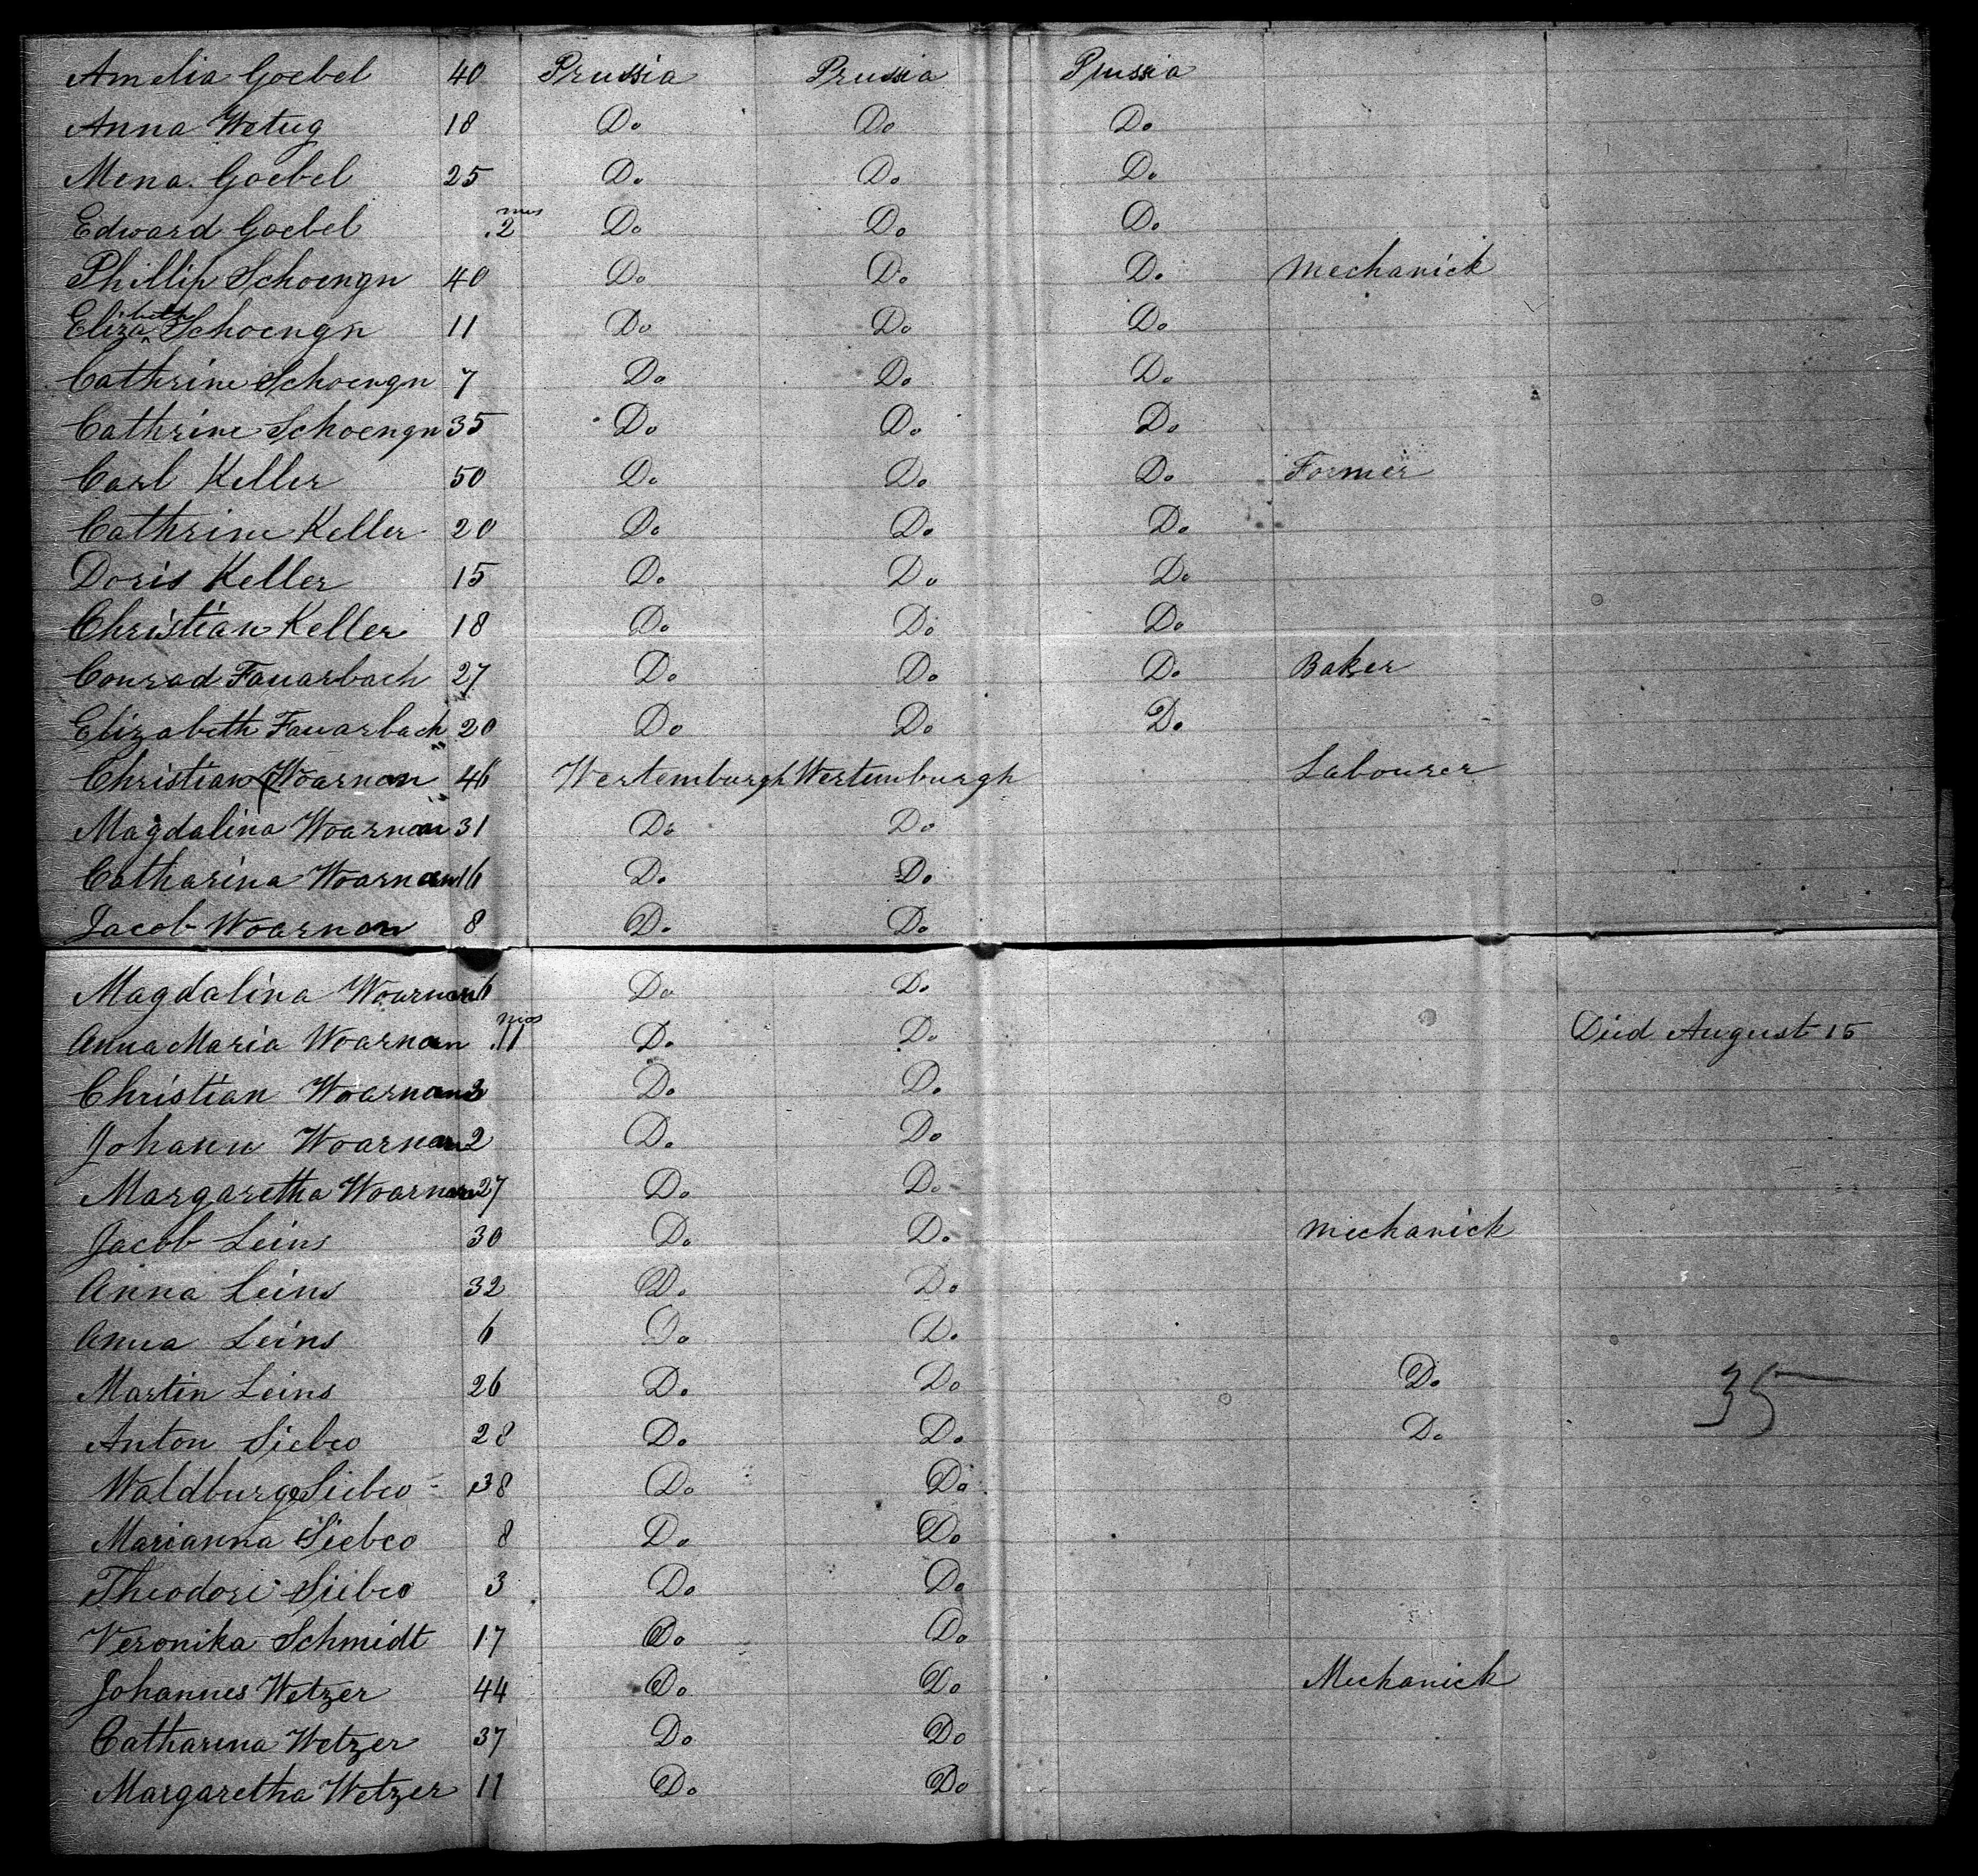 Amelia Goebel 40 Prussia Prussia Prussia
Anna Wetug 18 Do Do Do
Mena Goebel 25 Do Do Do
Edward Goebel 2 mos Do Do Do
Phillip Schoengn 40 Do Do Do Mechanick
Elizabeth Schoengn 11 Do Do Do
Cathrine Schoengn 7 Do Do Do
Cathrine Schoengn 35 Do Do Do
Carl Keller 50 Do Do Do Former
Cathrine Keller 20 Do Do Do
Doris Keller 15 Do Do Do
Christian Keller 18 Do Do Do
Conrad Fauarbach 27 Do Do Do Baker
Elizabeth Fauarbach 20 Do Do Do
Christian Woarnan 46 Wertemburgh Wertemburgh Labourer
Magdalina Woarnan 31 Do Do
Catharina Woarnan 16 Do Do
Jacob Woarnan 8 Do Do
Magdalina Woarnan 6 Do Do
Anna Maria Woarnan 11 mos Do Do Died August 15
Christian Woarnan 3 Do Do
Johann Woarnan 2 Do Do
Margaretha Woarnan 27 Do Do
Jacob Leins 30 Do Do Mechanick
Anna Leins 32 Do Do
Anna Leins 6 Do Do
Martin Leins 26 Do Do Do 35
Anton Siebeo 28 Do Do Do
Waldburga Siebeo 38 Do Do
Marianna Siebeo 8 Do Do
Theodore Siebeo 3 Do Do
Veronika Schmidt 17 Do Do
Johannes Wetzer 44 Do Do Mechanick
Catharina Wetzer 37 Do Do
Margaretha Wetzer 11 Do Do